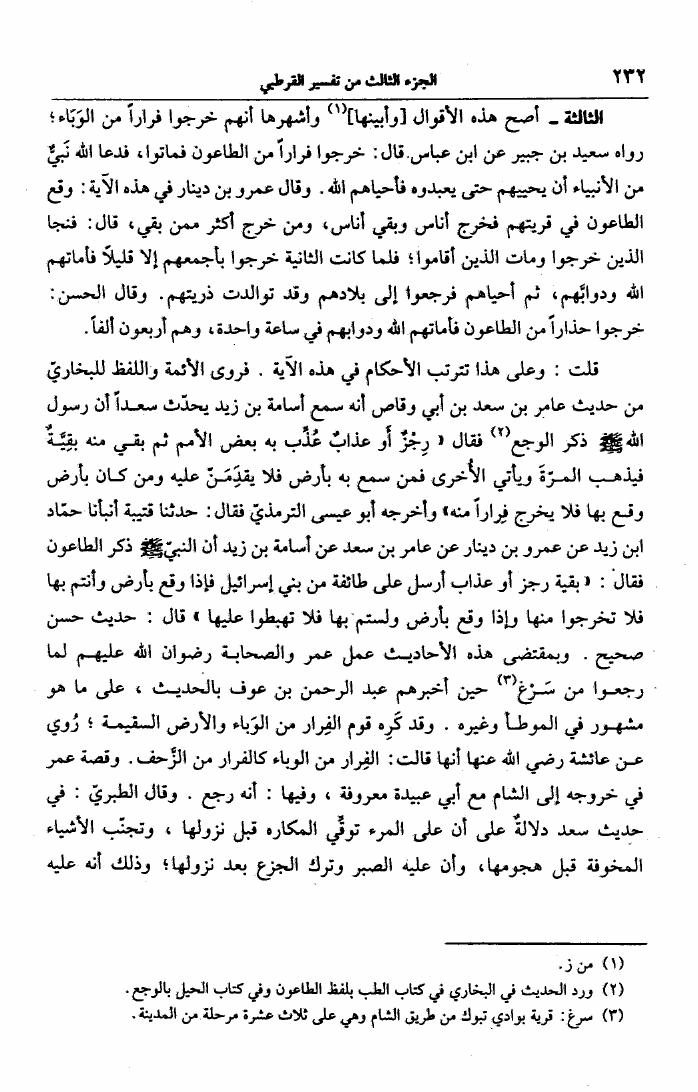 ٢٣٢
الجزء الثالث من تفسير القرطبي
الثالثة ـ أصح هذه الأقوال [وأبينها](١) وأشهرها أنهم خرجوا فراراً من الوَبَاء؛
رواه سعيد بن جبير عن ابن عباس. قال: خرجوا فراراً من الطاعون فماتوا، فدعا الله نَبيٌّ
من الأنبياء أن يحييهم حتى يعبدوه فأحياهم الله. وقال عمرو بن دينار في هذه الآية: وقع
الطاعون في قريتهم فخرج أناس وبقي أناس، ومن خرج أكثر ممن بقي، قال: فنجا
الذين خرجوا ومات الذين أقاموا؛ فلما كانت الثانية خرجوا بأجمعهم إلا قليلاً فأماتهم
الله ودوابَّهم، ثم أحياهم فرجعوا إلى بلادهم وقد توالدت ذريتهم. وقال الحسن:
خرجوا حذاراً من الطاعون فأماتهم الله ودوابهم في ساعة واحدة، وهم أربعون ألفاً.
قلت : وعلى هذا تترتب الأحكام في هذه الآية . فروى الأئمة واللفظ للبخاريّ
من حديث عامر بن سعد بن أبي وقاص أنه سمع أسامة بن زيد يحدّث سعداً أن رسول
الله ﷺ ذكر الوجع(٢) فقال « رِجْزٌ أو عذابٌ عُذِّب به بعض الأمم ثم بقي منه بقِيَّةٌ
فيذهب المرّةَ ويأتي الأُخرى فمن سمع به بأرض فلا يقدِمَنّ عليه ومن كان بأرض
وقع بها فلا يخرج فِراراً منه» وأخرجه أبو عيسى الترمذيّ فقال: حدثنا قتيبة أنبأنا حمّاد
ابن زيد عن عمرو بن دينار عن عامر بن سعد عن أسامة بن زيد أن النبيّ ﷺ ذكر الطاعون
فقال : « بقية رجز أو عذاب أرسل على طائفة من بني إسرائيل فإذا وقع بأرض وأنتم بها
فلا تخرجوا منها وإذا وقع بأرض ولستم بها فلا تهبطوا عليها » قال : حديث حسن
صحيح . وبمقتضى هذه الأحاديث عمل عمر والصحابة رضوان الله عليهم لما
رجعوا من سَرْغ(٣) حين أخبرهم عبد الرحمن بن عوف بالحديث ، على ما هو
مشهور في الموطأ وغيره . وقد كَرِه قوم الفِرار من الوَباء والأرض السقيمة ؛ رُوي
عن عائشة رضي الله عنها أنها قالت: الفِرار من الوباء كالفرار من الزَّحف. وقصة عمر
في خروجه إلى الشام مع أبي عبيدة معروفة ، وفيها : أنه رجع . وقال الطبريّ : في
حديث سعد دلالةٌ على أن على المرء توقِّي المكاره قبل نزولها ، وتجنّب الأشياء
المخوفة قبل هجومها، وأن عليه الصبر وترك الجزع بعد نزولها؛ وذلك أنه عليه
(١) من ز.
(٢) ورد الحديث في البخاري في كتاب الطب بلفظ الطاعون وفي كتاب الحيل بالوجع.
(٣) سرغ: قرية بوادي تبوك من طريق الشام وهي على ثلاث عشرة مرحلة من المدينة.